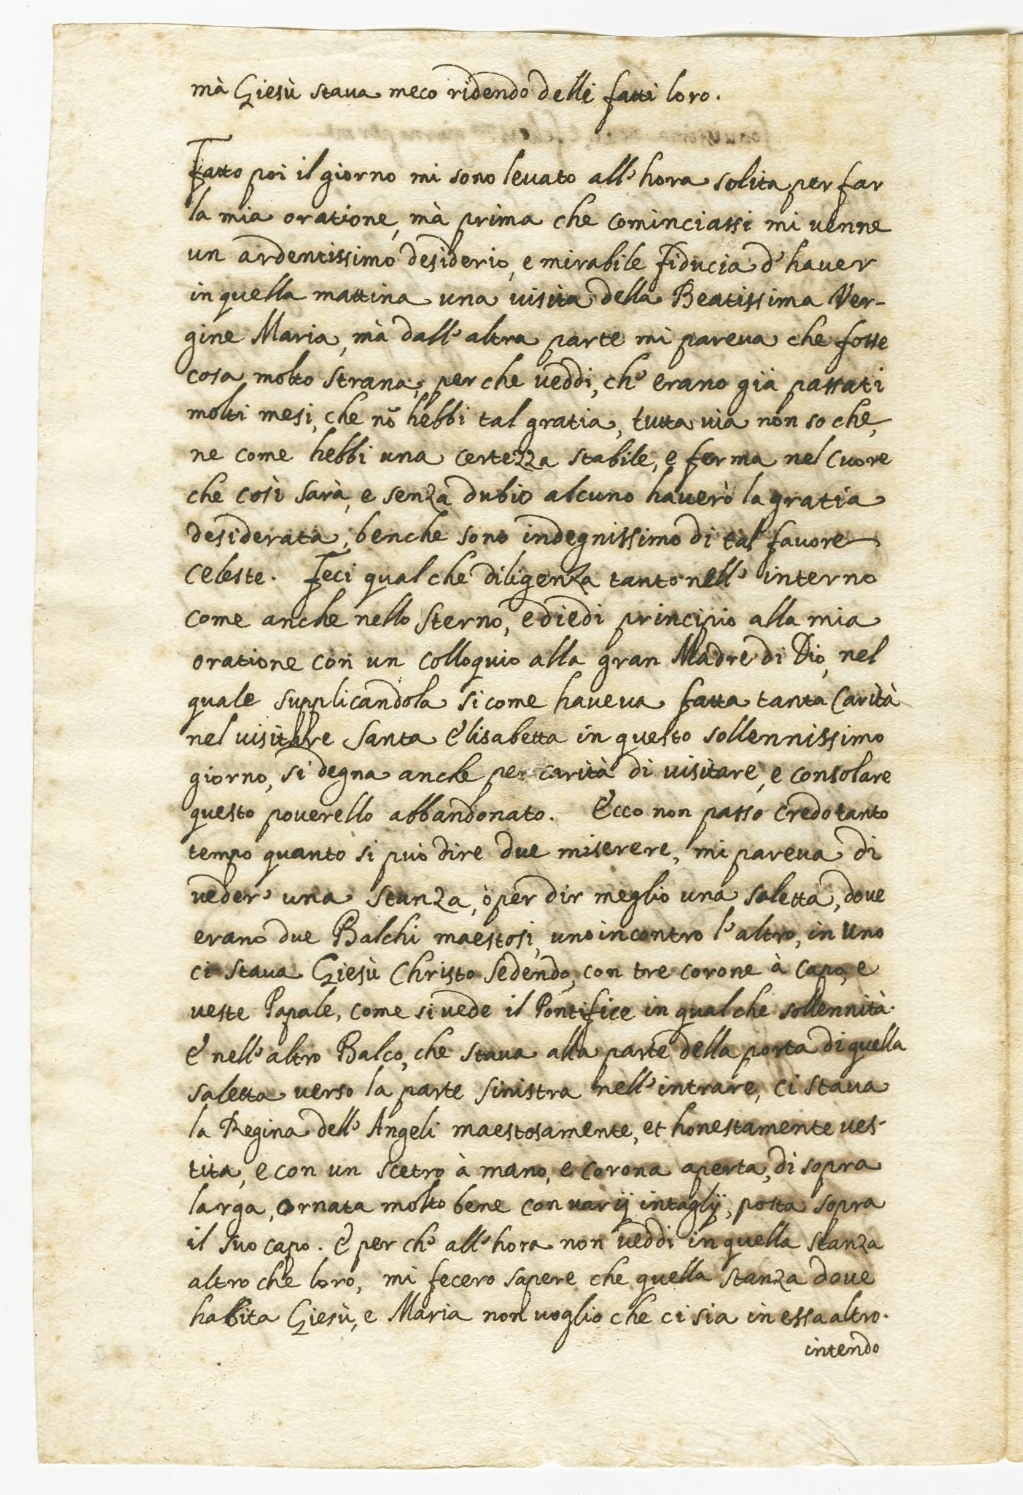 mà Giesù staua meco ridendo delli fatti loro.
Fatto poi il giorno mi sono leuato all'hora solita per far
la mia oratione, mà prima che cominciassi mi uenne
un ardentissimo desiderio, e mirabile fiducia d'hauer
in quella mattina una uisita della Beatissima Ver-
gine Maria, mà dall'altra parte mi pareua che fosse
cosa molto strana, perche ueddi, ch'erano già passati
molti mesi, che nõ hebbi tal gratia, tutta uia non so che,
ne come hebbi una certezza stabile, e ferma nel Cuore
che così sarà, e senza dubio alcuno hauerò la gratia
desiderata, benche sono indegnissimo di tal fauore
Celeste. Feci qualche diligenza tanto nell'interno
come anche nello sterno, e diedi principio alla mia
oratione con un colloquio alla gran Madre di Dio, nel
quale supplicandola si come haueua fatta tanta Carità
nel uisitare Santa Elisabetta in questo sollennissimo
giorno, si degna anche per carità di uisitare, e consolare
questo pouerello abbandonato. Ecco non passo credo tanto
tempo quanto si può dire due miserere, mi pareua di
ueder' una stanza, ò per dir meglio una saletta, doue
erano due Balchi maestosi, uno incontro l'altro, in uno
ci staua Giesù Christo sedendo, con tre corone à capo, e
ueste Papale, come si uede il Pontifice in qualche sollennità.
E nell'altro Balco, che staua alla parte della porta di quella
saletta uerso la parte sinistra nell'intrare, ci staua
la Regina dell'Angeli maestosamente, et honestamente ues-
tita, e con un scetro à mano, e corona aperta, di sopra
larga, ornata molto bene con uarij intaglij, posta sopra
il suo capo. E perch' all'hora non ueddi in quella stanza
altro che loro, mi fecero sapere che quella stanza doue
habita Giesù, e Maria non uoglio che ci sia in essa altro.
intendo